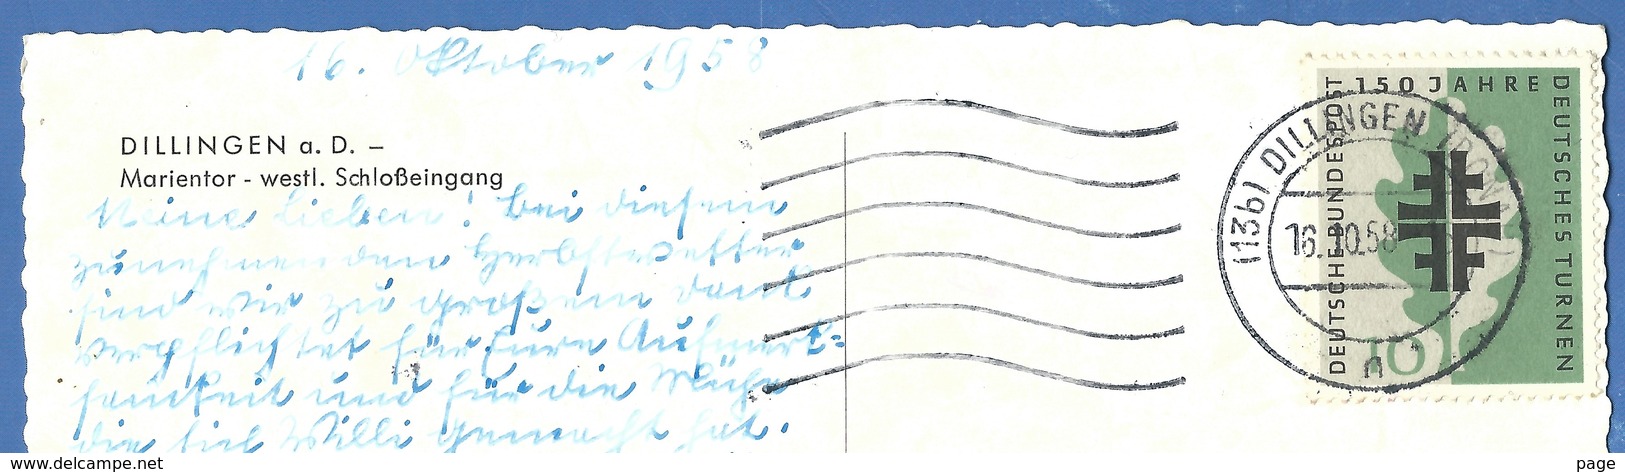 16. Oktober 1958
DILLINGEN a. D. –
Marientor - westl. Schloßeingang
Meine Lieben! Bei diesem
zunehmenden Herbstwetter
sind wir zu großem Dank
verpflichtet für Eure Aufmerk=
samkeit und für die Mühe
die sich Willi gemacht hat.
150 JAHRE
DEUTSCHES TURNEN
DEUTSCHE BUNDESPOST
10
(13b) DILLINGEN (DONAU)
16.10.58
n
https://www.delcampe.net
page